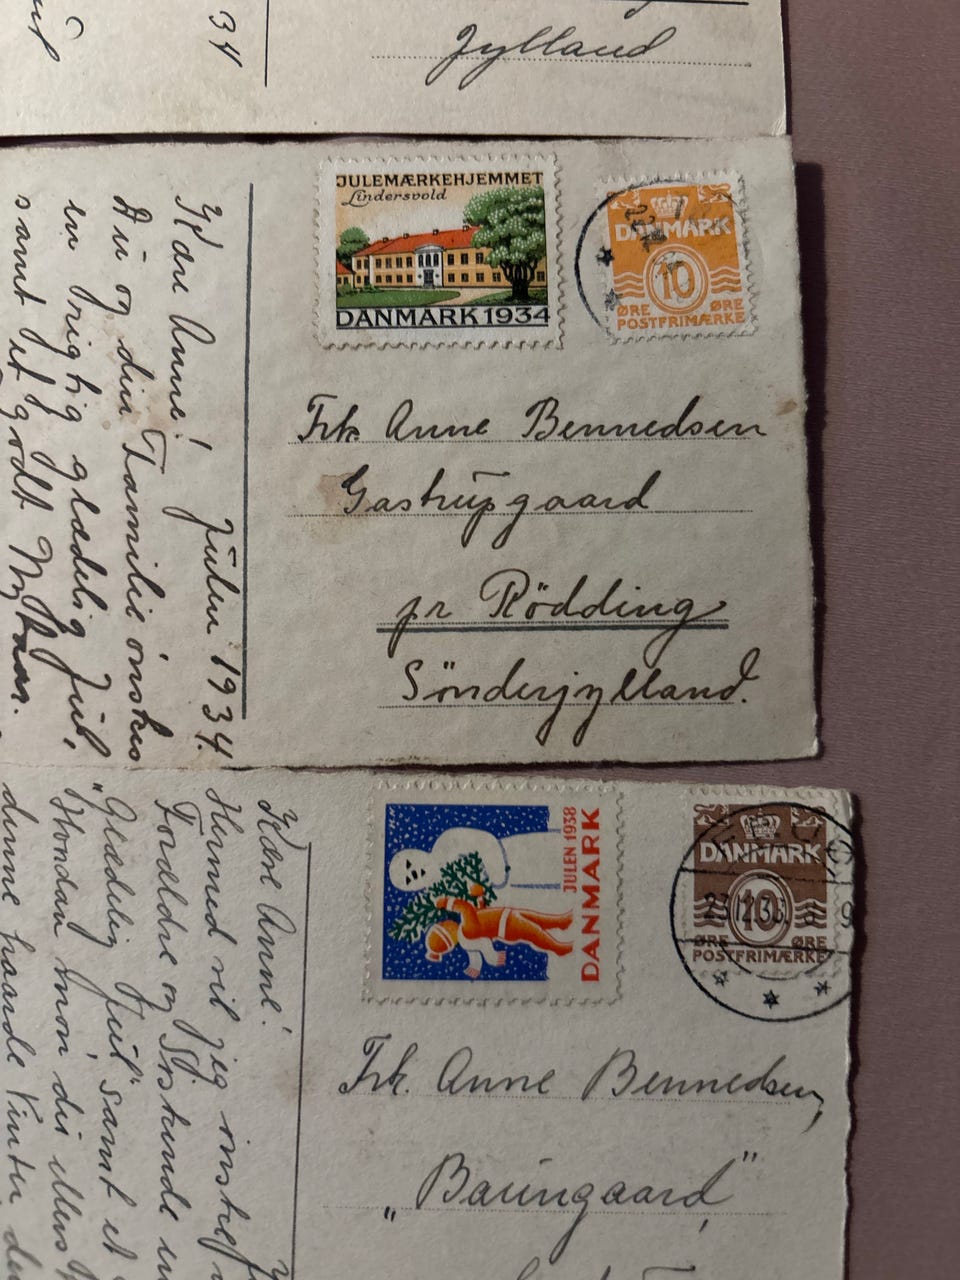 34
Jylland
Kære Anne! Julen 1934.
Du og din Familie ønskes
en rigtig glædelig Jul,
samt et godt Nytaar.
JULEMÆRKEHJEMMET
Lindersvold
DANMARK 1934
DANMARK
10
ØRE ØRE
POSTFRIMÆRKE
Frk Anne Bennedsen
Gastrupgaard
pr Rödding
Sönderjylland.
Kære Anne!
Hermed vil jeg ønske
Forældre og Søskende
"Glædelig Jul" samt et
Hvordan mon du ellers
denne haarde Vinter
JULEN 1938
DANMARK
DANMARK
10
ØRE ØRE
POSTFRIMÆRKE
23.12.38.
Frk. Anne Bennedsen,
„Baungaard”